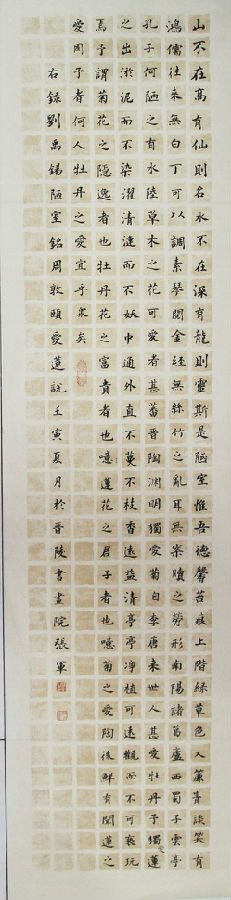 山不在高有仙則名水不在深有龍則靈斯是陋室惟吾德馨苔痕上階綠草色入簾青談笑有
鴻儒往來無白丁可以調素琴閱金經無絲竹之亂耳無案牘之勞形南陽諸葛廬西蜀子雲亭
孔子何陋之有水陸草木之花可愛者甚蕃晉陶淵明獨愛菊自李唐來世人甚愛牡丹予獨愛蓮
之出淤泥而不染濯清漣而不妖中通外直不蔓不枝香遠益清亭亭淨植可遠觀而不可褻玩
焉予謂菊花之隱逸者也牡丹花之富貴者也噫蓮花之君子者也噫菊之愛陶後鮮有聞蓮之
愛同予者何人牡丹之愛宜乎眾矣
右錄劉禹錫陋室銘周敦頤愛蓮說壬寅夏月於晉陵書畫院張軍